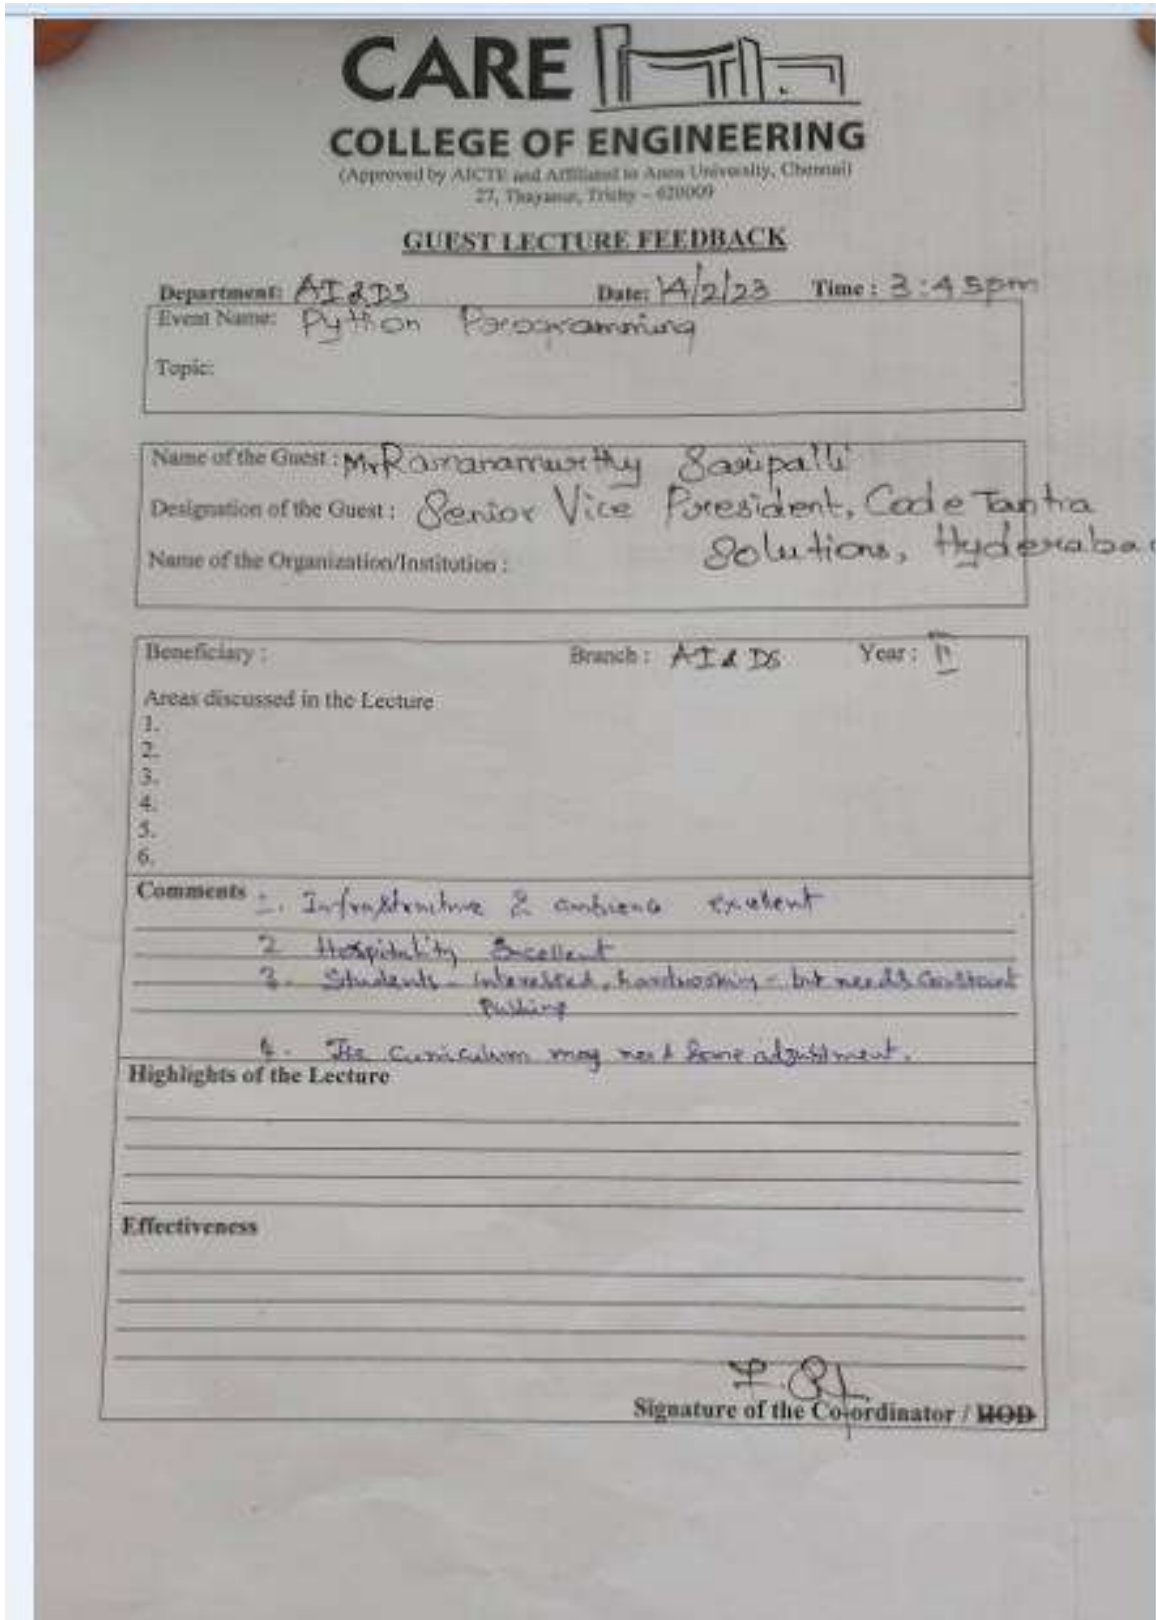 CARE
COLLEGE OF ENGINEERING
(Approved by AICTE and Affiliated to Anna University, Chennai)
27, Thayanur, Trichy – 620009
GUEST LECTURE FEEDBACK
Department: AI & DS Date: 14/2/23 Time : 3:45pm
Event Name: Python Programming
Topic:
Name of the Guest : Mr Ramanamurthy Saripalli
Designation of the Guest : Senior Vice President, Code Tantra
Solutions, Hyderaba
Name of the Organization/Institution :
Beneficiary : Branch : AI & DS Year : II
Areas discussed in the Lecture
1.
2.
3.
4.
5.
6.
Comments 1. Infrastructure & ambience excellent
2 Hospitality Excellent
3. Students - interested, hardworking - but needs constant
Pushing
4. The Curriculum may need some adjustment.
Highlights of the Lecture
Effectiveness
Signature of the Co-ordinator / HOD